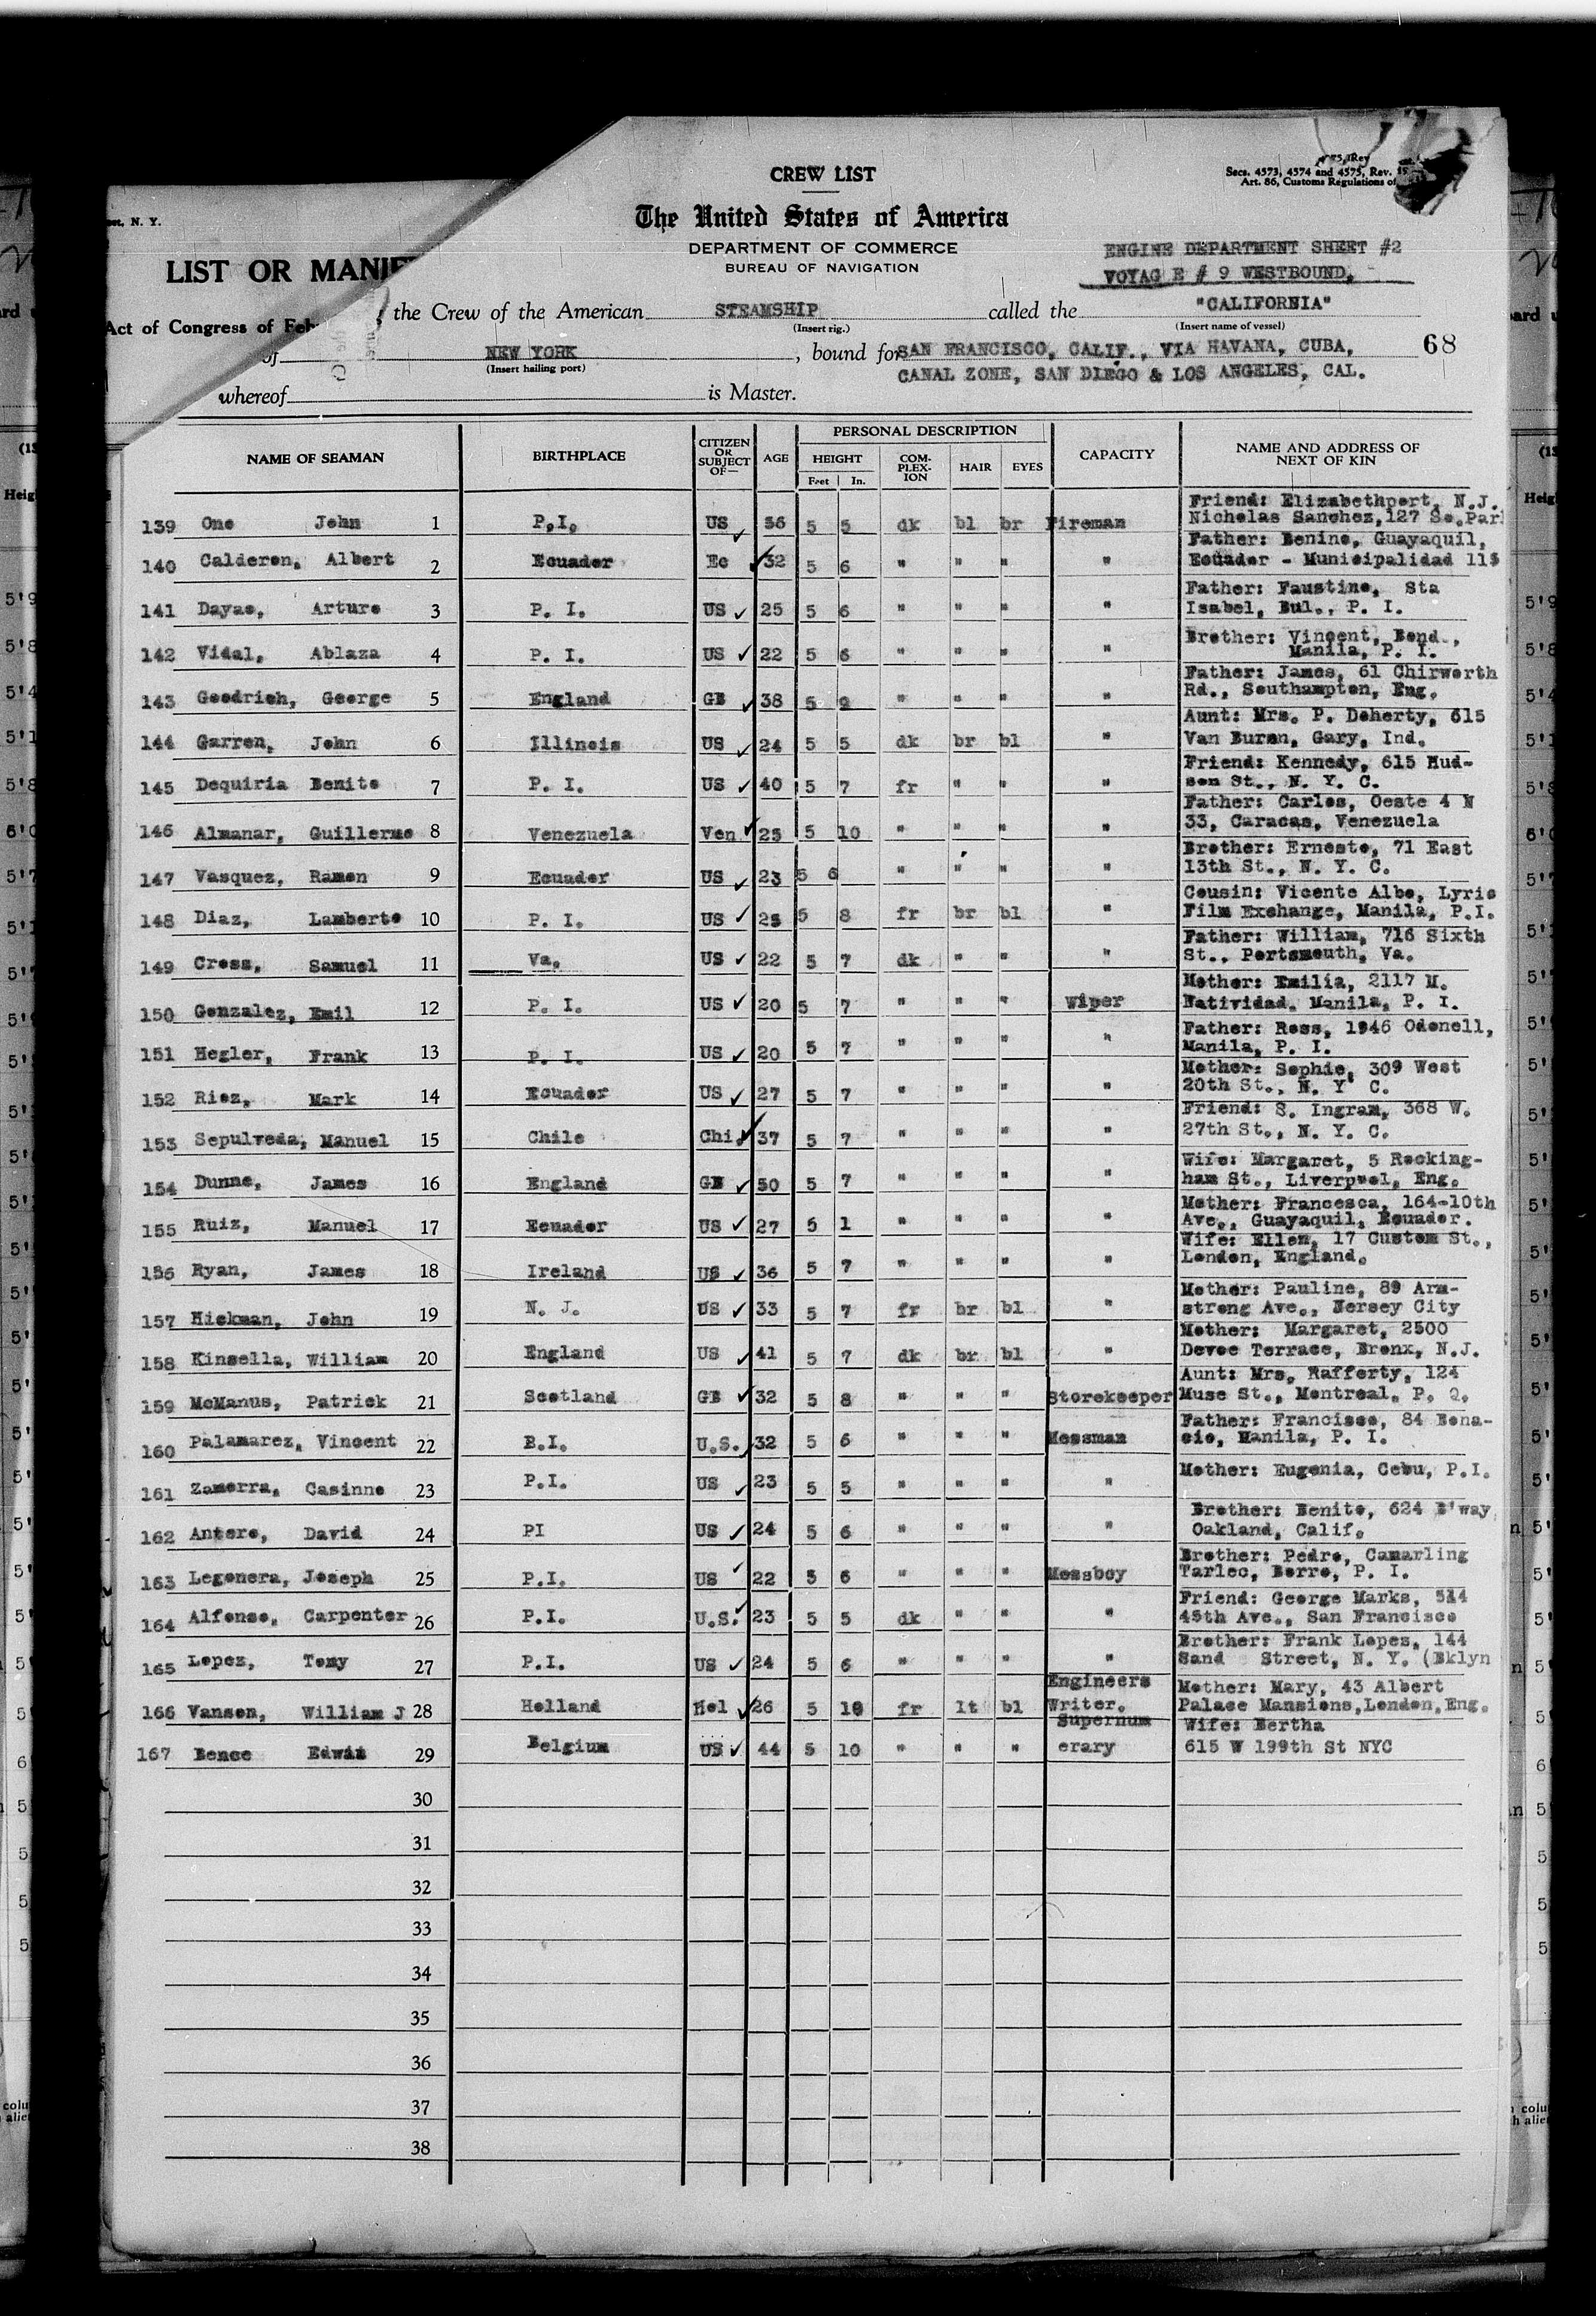 CREW LIST
Secs. 4573, 4574 and 4575, Rev.
Art. 86, Customs Regulations of
N. Y.
The United States of America
DEPARTMENT OF COMMERCE
BUREAU OF NAVIGATION
ENGINE DEPARTMENT SHEET #2
VOYAG E # 9 WESTBOUND.
LIST OR MANIF
the Crew of the American STEAMSHIP called the "CALIFORNIA"
(Insert rig.) (Insert name of vessel)
Act of Congress of Feb
of NEW YORK, bound for SAN FRANCISCO, CALIF., VIA HAVANA, CUBA, 68
(Insert hailing port)
CANAL ZONE, SAN DIEGO & LOS ANGELES, CAL.
whereof is Master.
NAME OF SEAMAN BIRTHPLACE CITIZEN OR SUBJECT OF— AGE PERSONAL DESCRIPTION CAPACITY NAME AND ADDRESS OF NEXT OF KIN
HEIGHT COM-PLEX-ION HAIR EYES
Feet In.
Friend: Elizabethport, N.J.
139 One John 1 P.I. US 36 5 5 dk bl br Fireman Nicholas Sanchez, 127 So.Par
Father: Benino, Guayaquil,
140 Calderon, Albert 2 Ecuador Ec 32 5 6 " " " " Ecuador - Municipalidad 115
Father: Faustino, Sta
141 Dayao, Arturo 3 P. I. US 25 5 6 " " " " Isabel, Bul., P. I.
Brother: Vincent, Bond.,
142 Vidal, Ablaza 4 P. I. US 22 5 6 " " " " Manila, P. I.
Father: James, 61 Chirworth
143 Goodrich, George 5 England GB 38 5 9 " " " " Rd., Southampton, Eng.
Aunt: Mrs. P. Doherty, 615
144 Garren, John 6 Illinois US 24 5 5 dk br bl " Van Buren, Gary, Ind.
Friend: Kennedy, 615 Hud-
145 Dequiria Benito 7 P. I. US 40 5 7 fr " " " son St., N. Y. C.
Father: Carlos, Oeste 4 N
146 Almanar, Guillermo 8 Venezuela Ven 25 5 10 " " " " 33, Caracas, Venezuela
Brother: Ernesto, 71 East
147 Vasquez, Ramon 9 Ecuador US 23 5 6 " " " " 13th St., N. Y. C.
Cousin: Vicente Albo, Lyric
148 Diaz, Lamberto 10 P. I. US 25 5 8 fr br bl " Film Exchange, Manila, P.I.
Father: William, 716 Sixth
149 Cross, Samuel 11 Va. US 22 5 7 dk " " " St., Portsmouth, Va.
Mother: Emilia, 2117 M.
150 Gonzalez, Emil 12 P. I. US 20 5 7 " " " Wiper Natividad, Manila, P. I.
Father: Ross, 1946 Odonell,
151 Hegler, Frank 13 P. I. US 20 5 7 " " " " Manila, P. I.
Mother: Sophie, 309 West
152 Rioz, Mark 14 Ecuador US 27 5 7 " " " " 20th St., N. Y C.
Friend: S. Ingram, 368 W.
153 Sepulveda, Manuel 15 Chile Chi. 37 5 7 " " " " 27th St., N. Y. C.
Wife: Margaret, 5 Rocking-
154 Dunne, James 16 England GB 50 5 7 " " " " ham St., Liverpool, Eng.
Mother: Francesca, 164-10th
155 Ruiz, Manuel 17 Ecuador US 27 5 1 " " " " Ave., Guayaquil, Ecuador.
Wife: Ellen, 17 Custom St.,
156 Ryan, James 18 Ireland US 36 5 7 " " " " London, England.
Mother: Pauline, 89 Arm-
157 Hickman, John 19 N. J. US 33 5 7 fr br bl " strong Ave., Jersey City
Mother: Margaret, 2500
158 Kinsella, William 20 England US 41 5 7 dk br bl " Devoe Terrace, Bronx, N.J.
Aunt: Mrs. Rafferty, 124
159 McManus, Patrick 21 Scotland GB 32 5 8 " " " Storekeeper Muse St., Montreal, P. Q.
Father: Francisco, 84 Bona-
160 Palamarez, Vincent 22 B.I. U.S. 32 5 6 " " " Messman cio, Manila, P. I.
161 Zamorra, Casinno 23 P.I. US 23 5 5 " " " " Mother: Eugenia, Cebu, P.I.
Brother: Benito, 624 B'way
162 Antero, David 24 PI US 24 5 6 " " " " Oakland, Calif.
Brother: Pedro, Camarling
163 Legonera, Joseph 25 P.I. US 22 5 6 " " " Messboy Tarlec, Borro, P. I.
Friend: George Marks, 514
164 Alfonso, Carpenter 26 P.I. U.S. 23 5 5 dk " " " 45th Ave., San Francisco
Brother: Frank Lopez, 144
165 Lopez, Tomy 27 P.I. US 24 5 6 " " " " Sand Street, N. Y. (Bklyn
Engineers Mother: Mary, 43 Albert
166 Vanson, William J 28 Holland Hol 26 5 10 fr lt bl Writer. Palace Mansions, London, Eng.
Supernum Wife: Bertha
167 Bence Edwin 29 Belgium US 44 5 10 " " " erary 615 W 199th St NYC
30
31
32
33
34
35
36
37
38